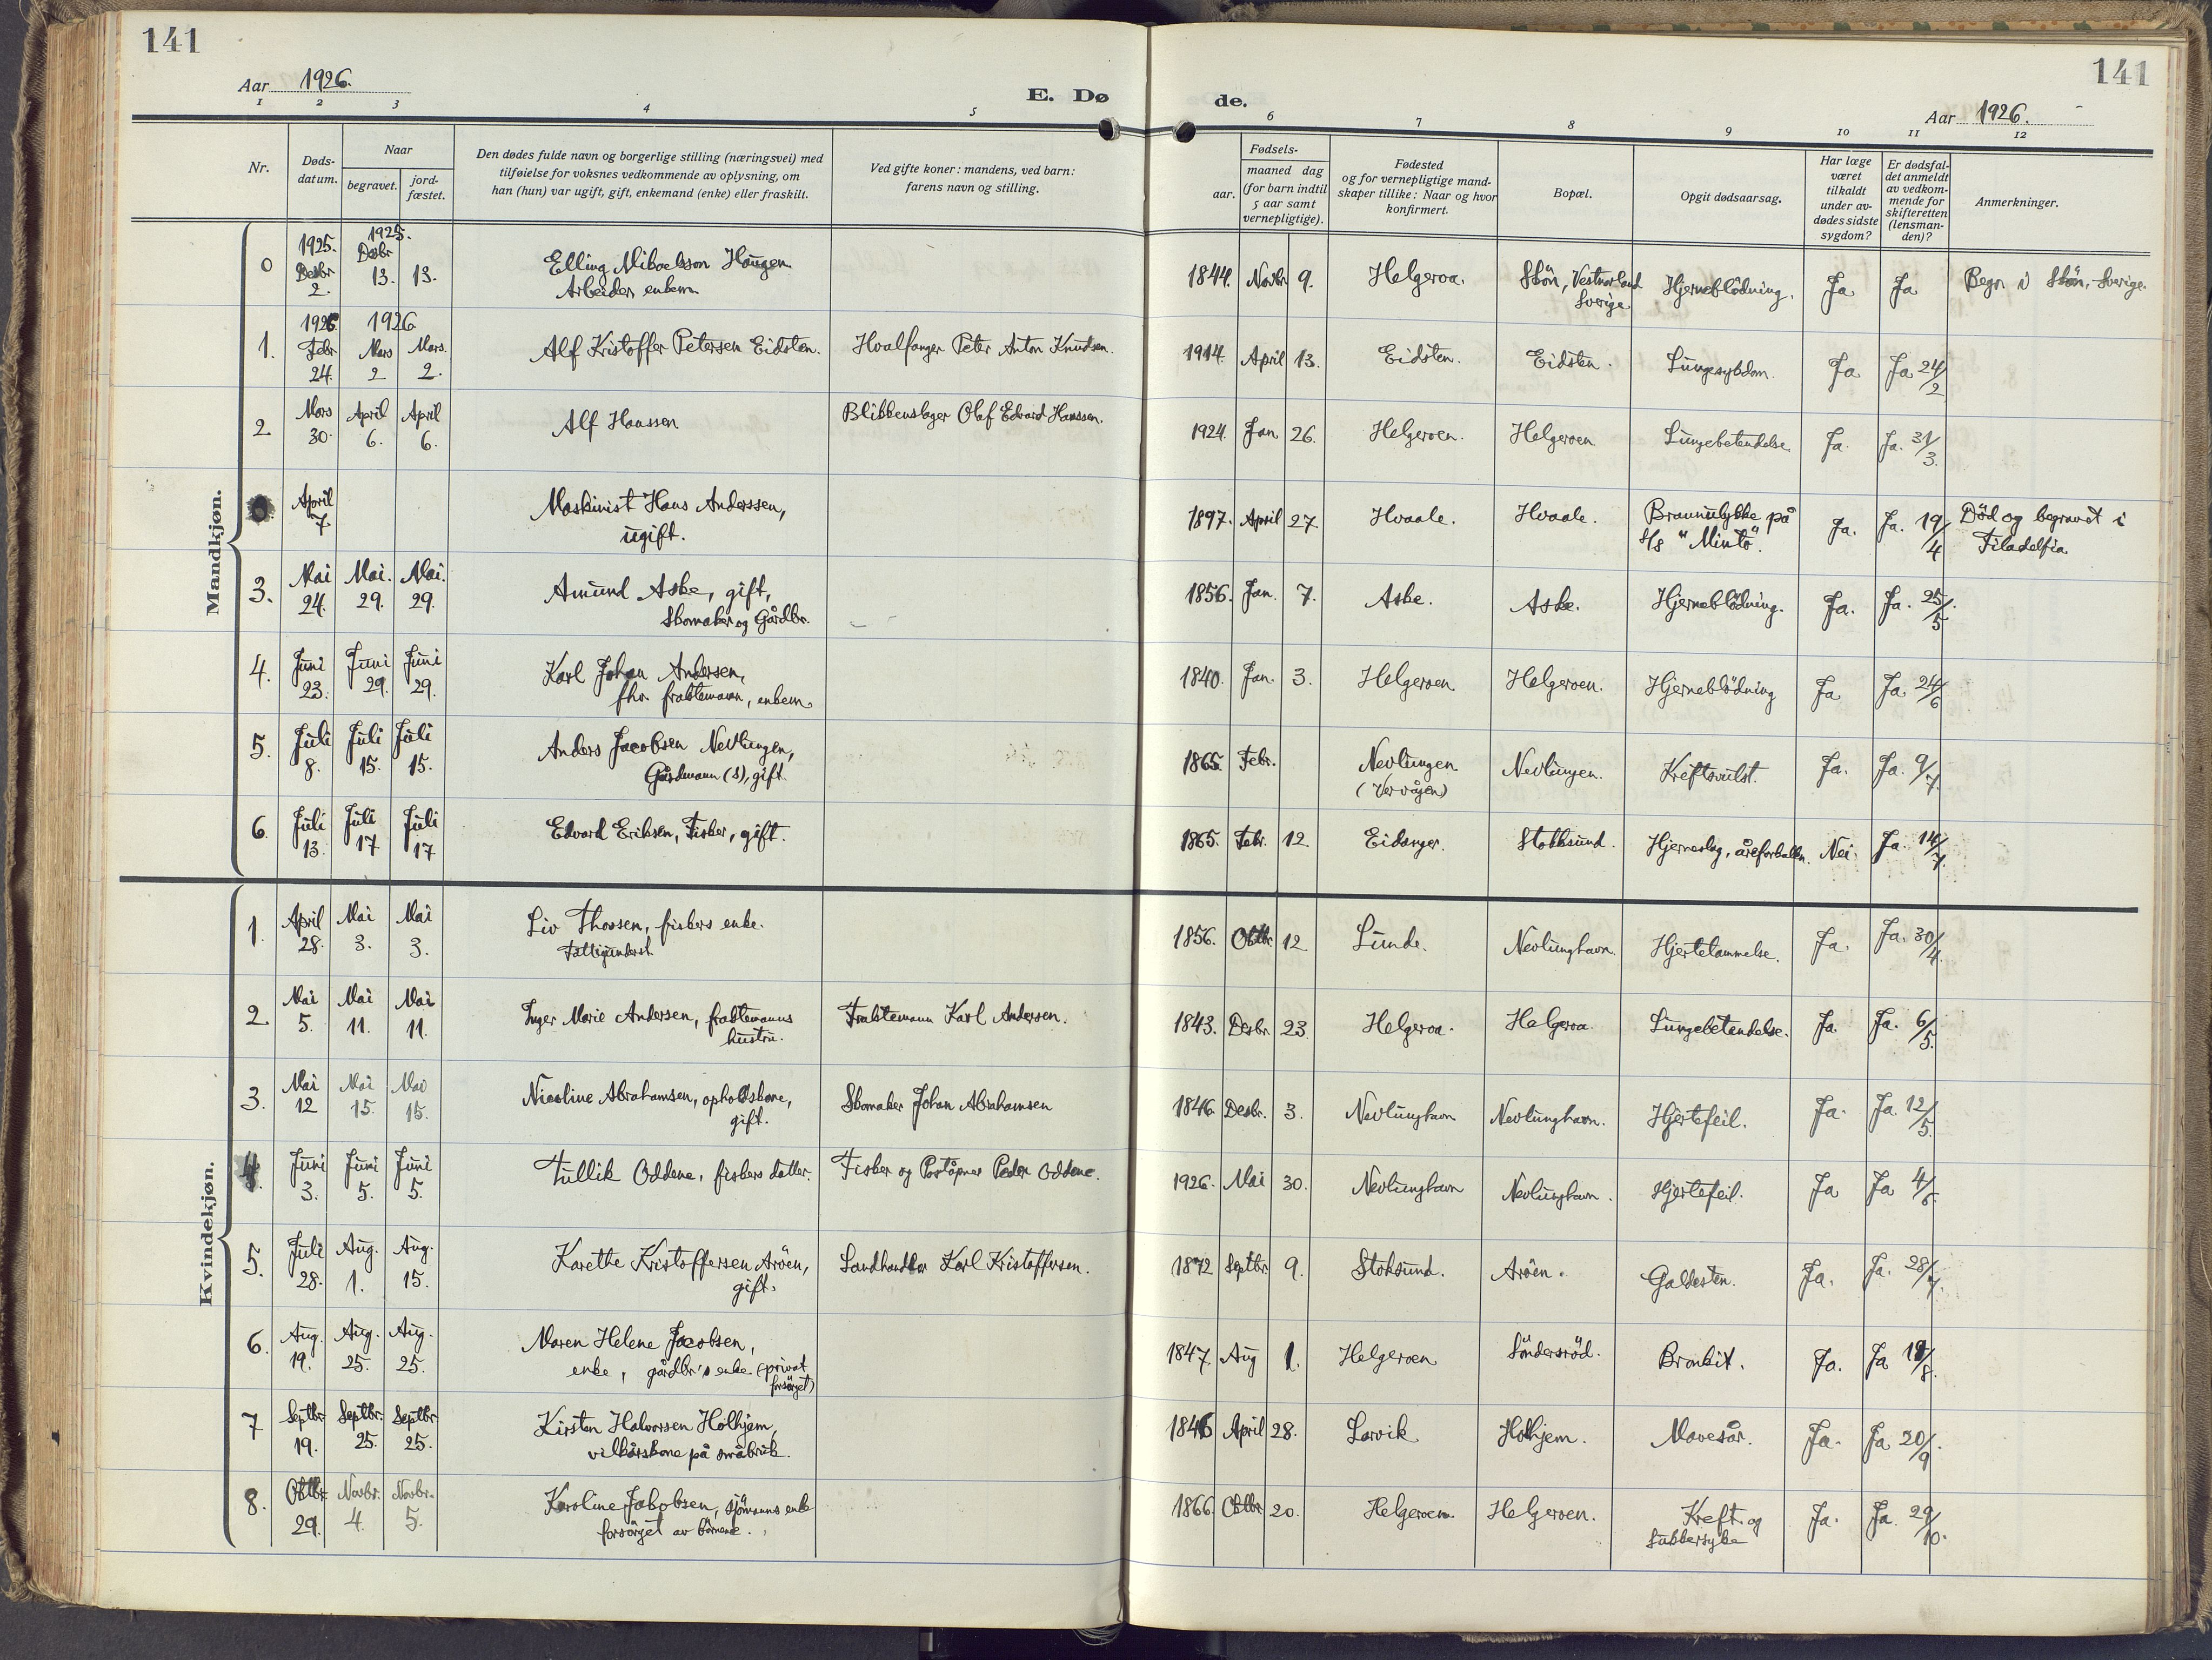 141
141
Aar 1926.
E. Dø
de.
Aar 1926.
1 2 3 4 5 6 7 8 9 10 11 12
Nr.
Døds-
datum.
Naar
begravet.
jord-
fæstet.
Den dødes fulde navn og borgerlige stilling (næringsvei) med
tilføielse for voksnes vedkommende av oplysning, om
han (hun) var ugift, gift, enkemand (enke) eller fraskilt.
Ved gifte koner: mandens, ved barn:
farens navn og stilling.
Fødsels-
aar.
maaned dag
(for barn indtil
5 aar samt
vernepligtige).
Fødested
og for vernepligtige mand-
skaper tillike: Naar og hvor
konfirmert.
Bopæl.
Opgit dødsaarsag.
Har læge
været
tilkaldt
under av-
dødes sidste
sygdom?
Er dødsfal-
det anmeldt
av vedkom-
mende for
skifteretten
(lensman-
den)?
Anmerkninger.
Mandkjøn.
0 1925. Desbr 2. 1925. Desbr 13. 13. Elling Mikaelsson Haugen
Arbeider, enkem. 1844. Novbr 9. Helgeroa. Skön, Vestnorland
Sverige Hjerneblödning. Ja Ja Begr. i Skön, Sverige.
1. 1926 Febr. 24. 1926 Mars 2 Mars. 2. Alf Kristoffer Petersen Eidsten. Hvalfanger Peter Anton Knudsen. 1914. April 13. Eidsten. Eidsten. Lungesykdom. Ja Ja 24/2
2 Mars 30. April 6. April 6. Alf Hanssen Blikkenslager Olaf Edvard Hanssen. 1924. Jan. 26. Helgeroen. Helgeroen Lungebetendelse Ja. Ja. 31/3.
0 April 7. Maskinist Hans Anderssen,
ugift. 1897. April 27. Hvaale. Hvaale. Brannulykke på
s/s "Minto". Ja. Ja. 19/4 Död og begravet i
Filadelfia.
3. Mai 24. Mai. 29. Mai. 29. Amund Aske, gift,
Skomaker og Gårdbr. 1856. Jan. 7. Aske. Aske. Hjerneblödning. Ja. Ja. 25/5.
4. Juni 23. Juni 29. Juni 29. Karl Johan Andersen,
fhv. fraktemann, enkem. 1840. Jan. 3. Helgeroen Helgeroen. Hjerneblödning Ja Ja 24/6
5. Juli 8. Juli 15. Juli 15. Anders Jacobsen Nevlungen,
Gårdmann (s), gift. 1865. Febr. Nevlungen
(Vervågen) Nevlungen. Kreftsvulst. Ja. Ja. 9/7.
6. Juli 13. Juli 17 Juli 17 Edvard Eriksen, Fisker, gift. 1865. Febr. 12. Eidanger. Stokksund. Hjerneslag, åreforkalkn. Nei. Ja. 14/7.
Kvindekjøn.
1. April 28. Mai 3. Mai 3. Liv Thorsen, fiskers enke.
Fattigunderst. 1856. Oktbr. 12 Lunde. Nevlunghavn. Hjertelammelse. Ja. Ja. 30/4.
2. Mai 5. Mai 11. Mai 11. Inger Marie Andersen, fraktemanns
hustru. Fraktemann Karl Andersen. 1843. Desbr. 23. Helgeroa. Helgeroa. Lungebetendelse. Ja. Ja. 6/5.
3. Mai 12 Mai 15. Mai 15. Nicoline Abrahamsen, opholdskone,
gift. Skomaker Johan Abrahamsen 1846. Desbr. 3. Nevlunghavn Nevlunghavn. Hjertefeil. Ja. Ja. 12/5.
4. Juni 3. Juni 5. Juni 5. Tullik Oddene, fiskers datter. Fisker og Poståpner Peder Oddene. 1926. Mai 30. Nevlunghavn Nevlunghavn. Hjertefeil. Ja Ja 4/6.
5. Juli 28. Aug. 1. Aug. 15. Karethe Kristoffersen Aröen,
gift. Landhandler Karl Kristoffersen. 1872 Septbr. 9. Stoksund. Aröen. Galdesten. Ja. Ja. 28/7.
6. Aug. 19. Aug. 25. Aug. 25. Maren Helene Jacobsen,
enke, gårdbr's enke (privat
forsörget) 1847. Aug 1. Helgeroen Söndersröd. Bronkit. Ja. Ja 19/8.
7 Septbr. 19. Septbr. 25. Septbr. 25. Kirsten Halvorsen Holhjem,
vilkårskone på småbruk. 1846 April 28. Larvik Holhjem. Mavesår. Ja. Ja 20/9.
8. Oktbr. 29. Novbr. 4. Novbr. 5. Karoline Jakobsen, sjömanns enke
forsörget av börnene. 1866. Oktbr. 20. Helgeroen. Helgeroen. Kreft og
Sukkersyke Ja. Ja. 29/10.